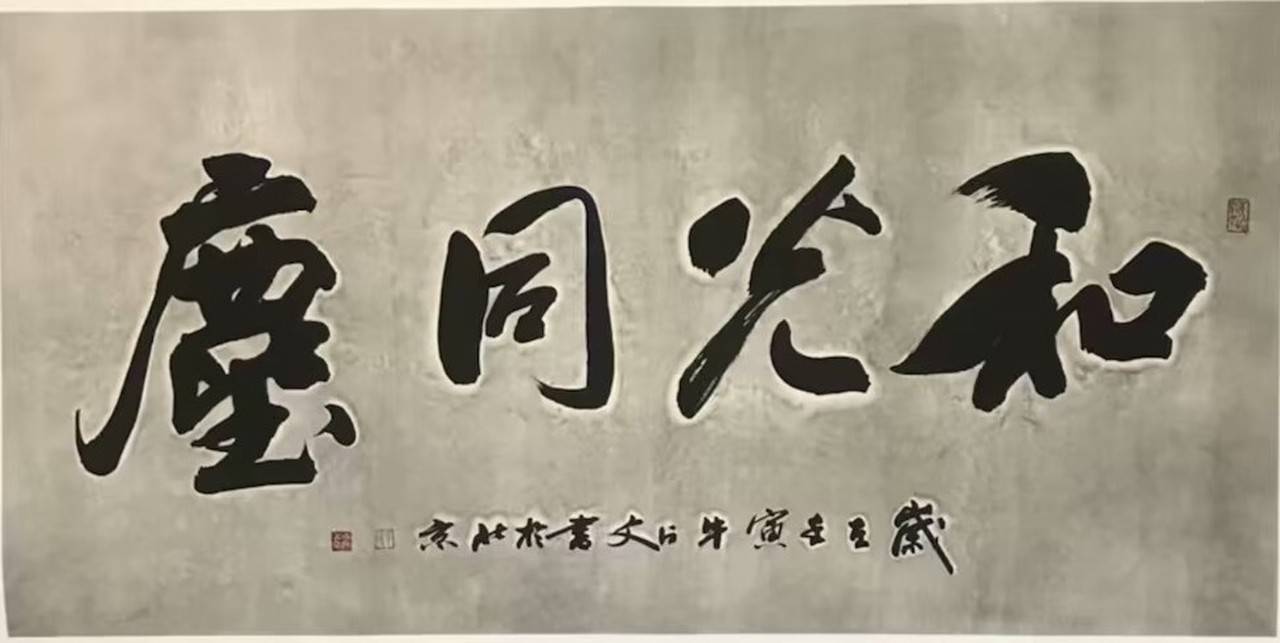 和光同塵
歲在壬寅牛行文書於北京